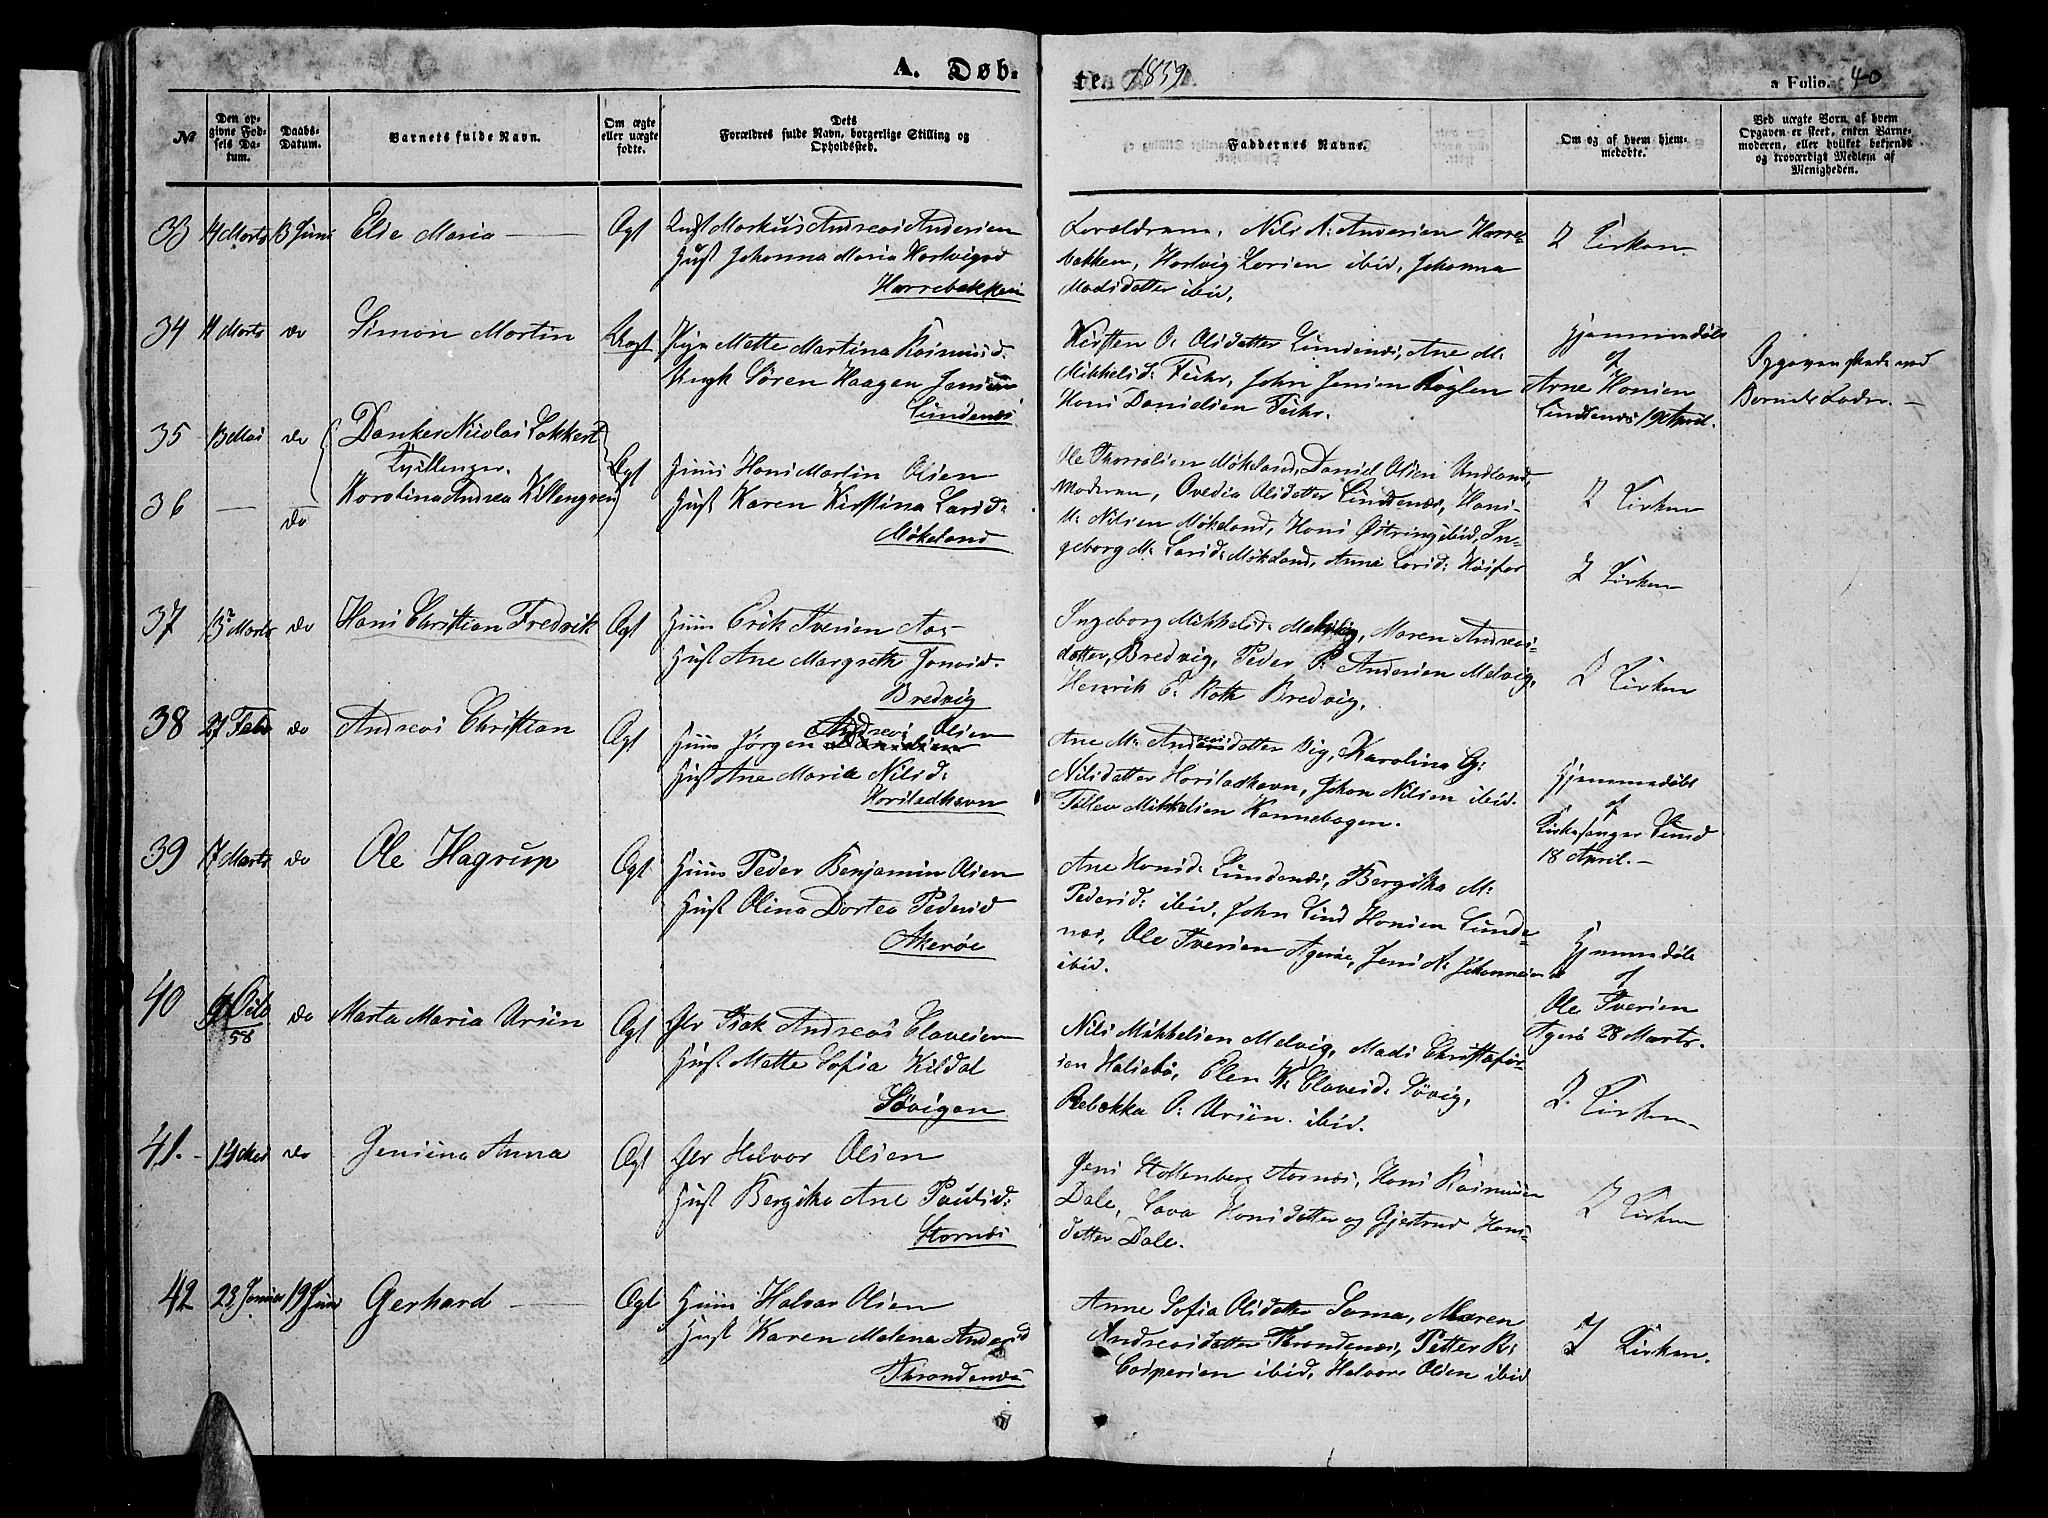 A. Døb-
te. 1859
a Folio. 40
No
Den op-
givne Fød-
sels Da-
tum.
Daabs-
Datum.
Barnets fulde Navn.
Om ægte
eller uægte
fødte.
Dets
Forældres fulde Navn, borgerlige Stilling og
Opholdssted.
Faddernes Navne.
Om og af hvem hjem-
medøbte.
Ved uægte Børn, af hvem
Opgaven er skeet, enten Barne-
moderen, eller hvilket bekjendt
og troværdigt Medlem af
Menigheden.
33 Marts 13 Juni Elie Maria Ægt Markus Andreas Andersen
Hust Johanna Maria Hartvigsd
Harrebakken
Forældrene, Nils N: Andersen Harre-
bakken, Hartvig Larsen ibid, Johanna
Madsdatter ibid.
I Kirken
34 Marts do Simon Martin Uægt Pige Mette Martina Rasmusd.
Ungk Søren Haagen Jensen
Lundenæs
Kirsten O. Olsdatter Lundenæs, Ane M:
Mikkelsd: John Jensen
Hans Danielsen
Hjemmedøbt
af
Arne Hansen
Lundenæs 19 April.
Opgaven skede ved
Barnets Fader. —
35 13 Mai do Danker Nicolai Lokkert
Tvillinger.
36 — do Karolina Andrea Killengreen
Ægt Huus Hans Martin Olsen
Hust Karen Kirstina Larsd:
Møkeland
Ole Thorvalsen Møkeland, Daniel Olsen Undland,
Moderen, Ovedia Olsdatter Lundenæs, Hans
M: Nilsen Møkeland, Hans Østring ibid, In-
geborg M: Larsd: Møkeland, Anna Larsd:
I Kirken
I Kirken
37 13 Marts do Hans Christian Fredrik Ægt Huus Erik Iversen Aa-
Hust Ane Margreth Jonsd.
Bredvig
Ingeborg Mikkelsd: Melvig, Maren Andreas-
datter, Bredvig, Peder P: Andersen Melvig,
Henrik E. Roth Bredvig.
I Kirken
38 27 Febr do Andreas Christian Ægt Huus Jørgen Andreas Olsen
Hust Ane Maria Nilsd:
Harstadhavn
Ane M: datter Vig, Karolina G:
Nilsdatter Harstadhavn, Johan Nilsen ibid.
Tollev Mikkelsen Kannebogen.
Hjemmedøbt
af
Kirkesanger Lund
18 April. —
39 17 Marts do Ole Hagrup Ægt Huus Peder Benjamin Olsen
Hust Olina Dortea Pedersd
Akerøe
Ane Hansd: Lundenæs, Bergitha M:
Pedersd: ibid, John Lind Hansen Lunde-
næs, Ole Iversen Agerøe, Jens N: Johannesen
ibid.
Hjemmedøbt
af
Ole Iversen
Agerø 28 Marts.
40 9 Octo
58 do Marta Maria Ursin Ægt Isak Andreas Clavesen
Hust Mette Sofia Kildal
Søvigen
Nils Mikkelsen Melvig, Mads Christofer-
sen Halsebø, Elen K: Clavesd: Søvig,
Rebekka O: Ursin. ibid.
I Kirken
41. 14 Mai do Jensina Anna Ægt Halvor Olsen
Hust Bergitha Ane Paulsd:
Stornæs
Jens Stoltenberg Aarnæs, Hans Rasmusen
Dale, Lava Hansdatter og Gjertrud Hans-
datter Dale.
I Kirken
42 23 Januar 19 Juni Gerhard Ægt Huus Halvor Olsen
Hust Karen Malena Andersd
Throndenæs
Anne Sofia Olsdatter Sama, Maren
Andreasdatter Throndenæs, Petter R:
Caspersen ibid, Halvor Olsen ibid
I Kirken.